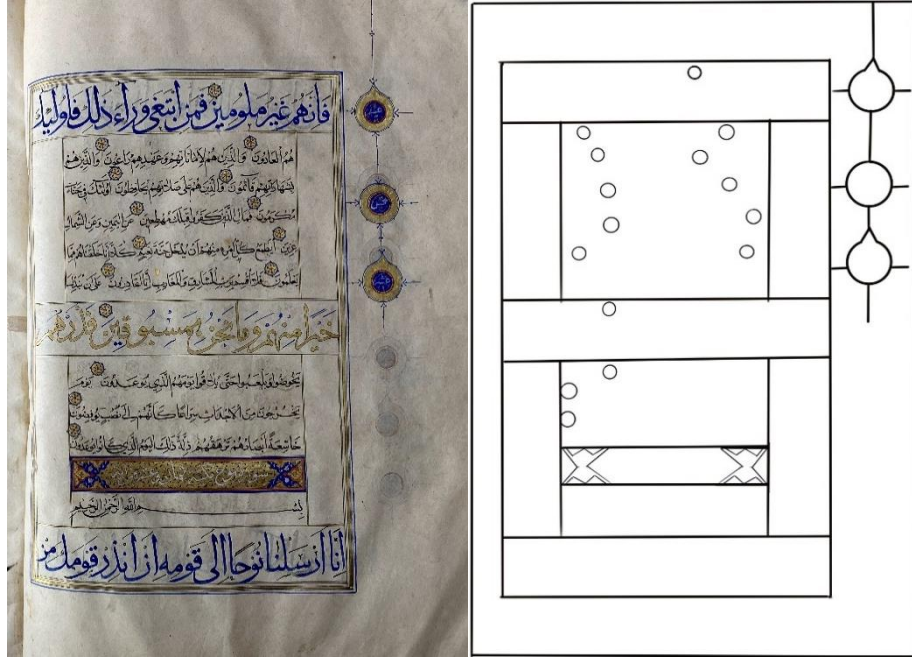 فإنهم غير ملومين فمن ابتغى وراء ذلك فأولئك
هم العادون والذين هم لأماناتهم وعهدهم راعون والذين هم
بشهاداتهم قائمون والذين هم على صلاتهم يحافظون أولئك في جنات
مكرمون فمال الذين كفروا قبلك مهطعين عن اليمين وعن الشمال
عزين أيطمع كل امرئ منهم أن يدخل جنة نعيم كلا إنا خلقناهم مما
يعلمون فلا أقسم برب المشارق والمغارب إنا لقادرون على أن نبدل
خيرا منهم وما نحن بمسبوقين فذرهم
يخوضوا ويلعبوا حتى يلاقوا يومهم الذي يوعدون يوم
يخرجون من الأجداث سراعا كأنهم إلى نصب يوفضون
خاشعة أبصارهم ترهقهم ذلة ذلك اليوم الذي كانوا يوعدون
بسم الله الرحمن الرحيم
إنا أرسلنا نوحا إلى قومه أن أنذر قومك من